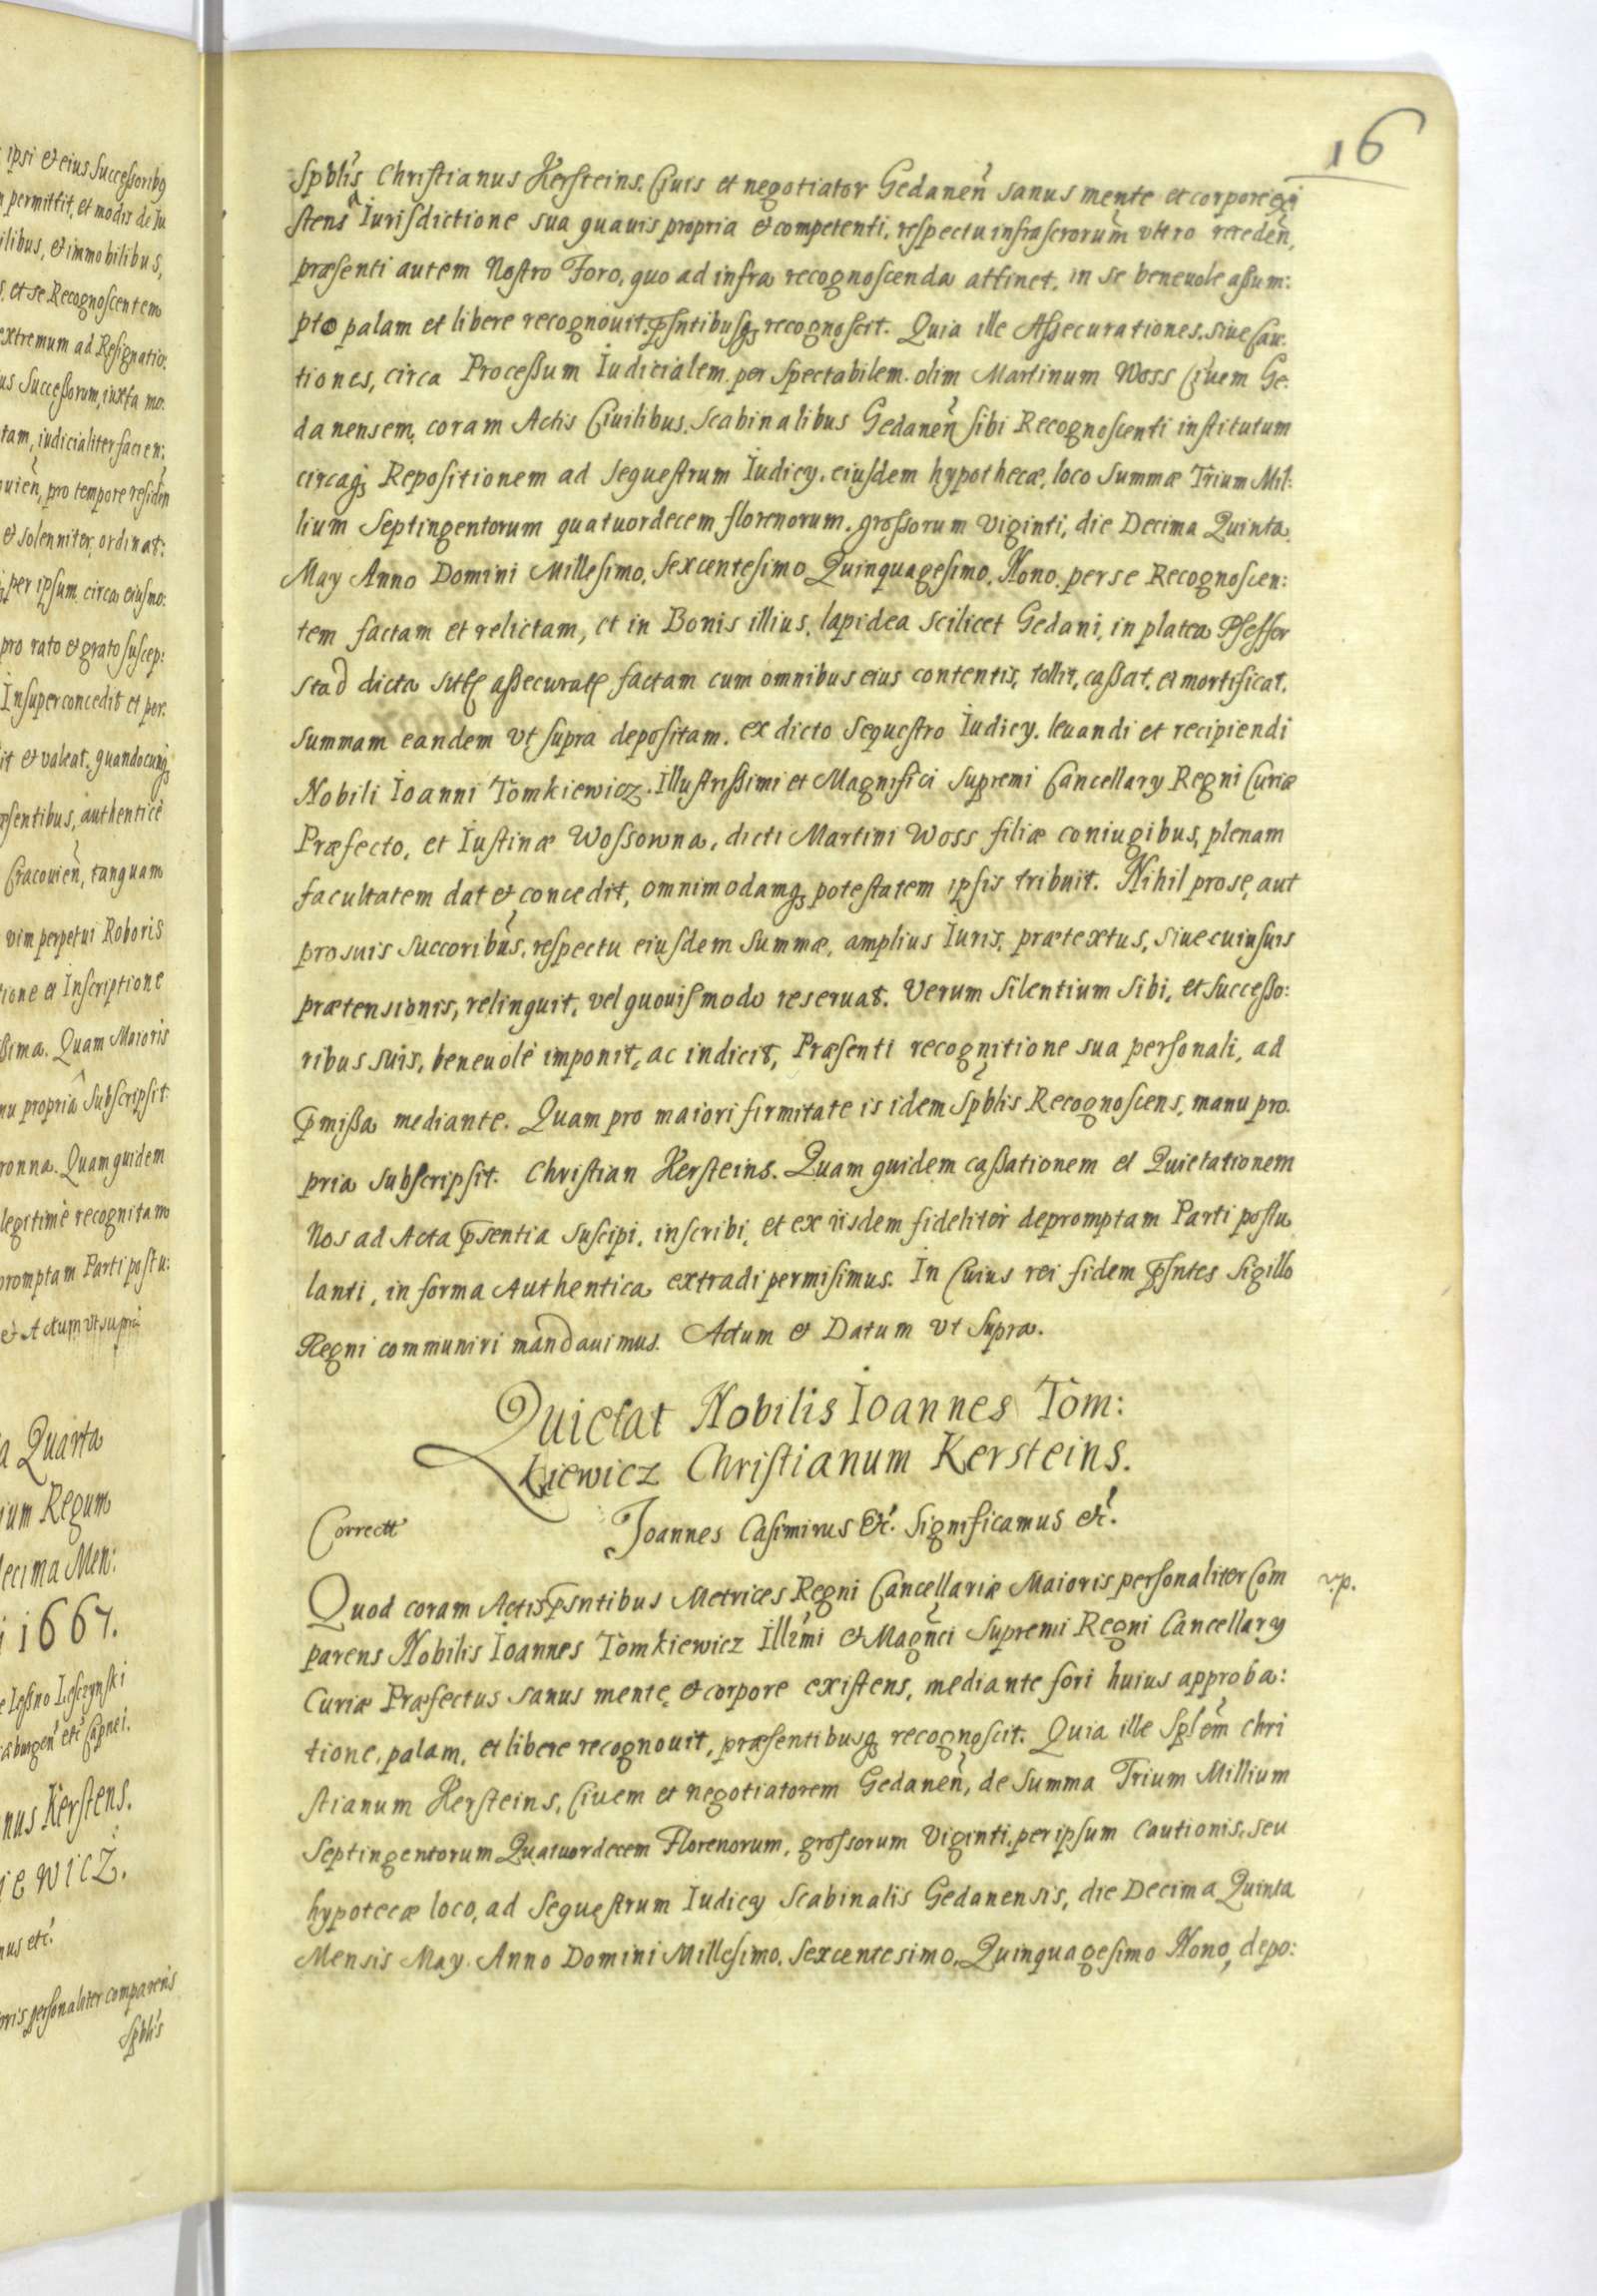 ipsi et eius Successoribq
permittit, et modis de Iu
ilibus, et immobilibus,
et se Recognoscentem
extremum ad Resignatio:
us Successorum, iuxta mo:
tam, iudicialiter facien:
pro tempore residen
et solenniter ordinat:
per ipsum circa eiusmo:
pro rato et grato suscep:
Insuper concedit et per:
it et valeat. quandocunq
sentibus, authenticè
Cracovien, tanquam
vim perpetui Roboris
tione et Inscriptione
ssima. Quam Maioris
nu propriâ Subscripsit
ronna. Quam quidem
legitimè recognitam
promptam Parti postu:
et Actum ut supra
a Quarta
ium Regum
decima Men:
1667.
Leszno Lesczynski
nus Kerstens.
iewicz.
nus etc.
oris personaliter comparens
Spblis
16
Spblis Christianus Kersteins. Ciuis et negotiator Gedanen sanus mente et corpore exi
stens Iurisdictione sua quauis propria et competenti, respectu infrascrorum vltro receden,
præsenti autem Nostro Foro, quo ad infra recognoscenda attinet. in se beneuole assum:
pto palam et libere recognouit. psntibusq recognoscit. Quia ille Assecurationes. siue Cau:
tiones, circa Processum Iudicialem. per Spectabilem. olim Martinum Woss Ciuem Ge:
danensem, coram Actis Ciuilibus. Scabinalibus Gedanen sibi Recognoscenti institutum
circaq Repositionem ad Sequestrum Iudicy. eiusdem hypothecæ, loco Summæ Trium Mil:
lium Septingentorum quatuordecem florenorum. grossorum viginti, die Decima Quinta.
May Anno Domini Millesimo, Sexcentesimo Quinquagesimo. Nono. per se Recognoscen:
tem factam et relictam, et in Bonis illius, lapidea scilicet Gedani, in platea Pfeffer
stad dicta factam cum omnibus eius contentis, tollit, cassat. et mortificat.
Summam eandem vt supra depositam. ex dicto Sequestro Iudicy. leuandi et recipiendi
Nobili Ioanni Tomkiewicz. Illustrissimi et Magnifici Supremi Cancellary Regni Curiæ
Præfecto, et Iustinæ Wossowna, dicti Martini Woss filiæ coniugibus, plenam
facultatem dat et concedit, omnimodamq potestatem ipsis tribuit. Nihil pro se, aut
pro suis Succoribus, respectu eiusdem Summæ, amplius Iuris, prætextus, siue cuiusuis
prætensionis, relinquit, vel quouismodo reseruat. Verum Silentium Sibi, et Successo:
ribus suis, beneuolè imponit, ac indicit, Præsenti recognitione sua personali, ad
pmissa mediante. Quam pro maiori firmitate is idem Spblis Recognoscens, manu pro:
pria subscripsit. Christian Kersteins. Quam quidem cassationem et Quietationem
Nos ad Acta psentia suscipi, inscribi, et ex iisdem fideliter depromptam Parti postu
lanti, in forma Authentica extradi permisimus. In Cuius rei fidem psntes Sigillo
Regni communiri mandauimus. Actum et Datum vt Supra.
Quietat Nobilis Ioannes Tom:
kiewicz Christianum Kersteins.
Correctt
Joannes Casimirus etc. Significamus etc.
Quod coram Actis psntibus Metrices Regni Cancellariæ Maioris personaliter Com
parens Nobilis Ioannes Tomkiewicz Illmi et Magnci Supremi Regni Cancellary
Curiæ Præfectus sanus mente, et corpore existens, mediante fori huius approba:
tione, palam, et libere recognouit, præsentibusq recognoscit. Quia ille Splem Chri
stianum Kersteins, Ciuem et negotiatorem Gedanen, de Summa Trium Millium
Septingentorum Quatuordecem Florenorum, grossorum Viginti, per ipsum Cautionis, seu
hypotecæ loco, ad Sequestrum Iudicy Scabinalis Gedanensis, die Decima Quinta
Mensis May. Anno Domini Millesimo. Sexcentesimo. Quinquagesimo Nono, depo: